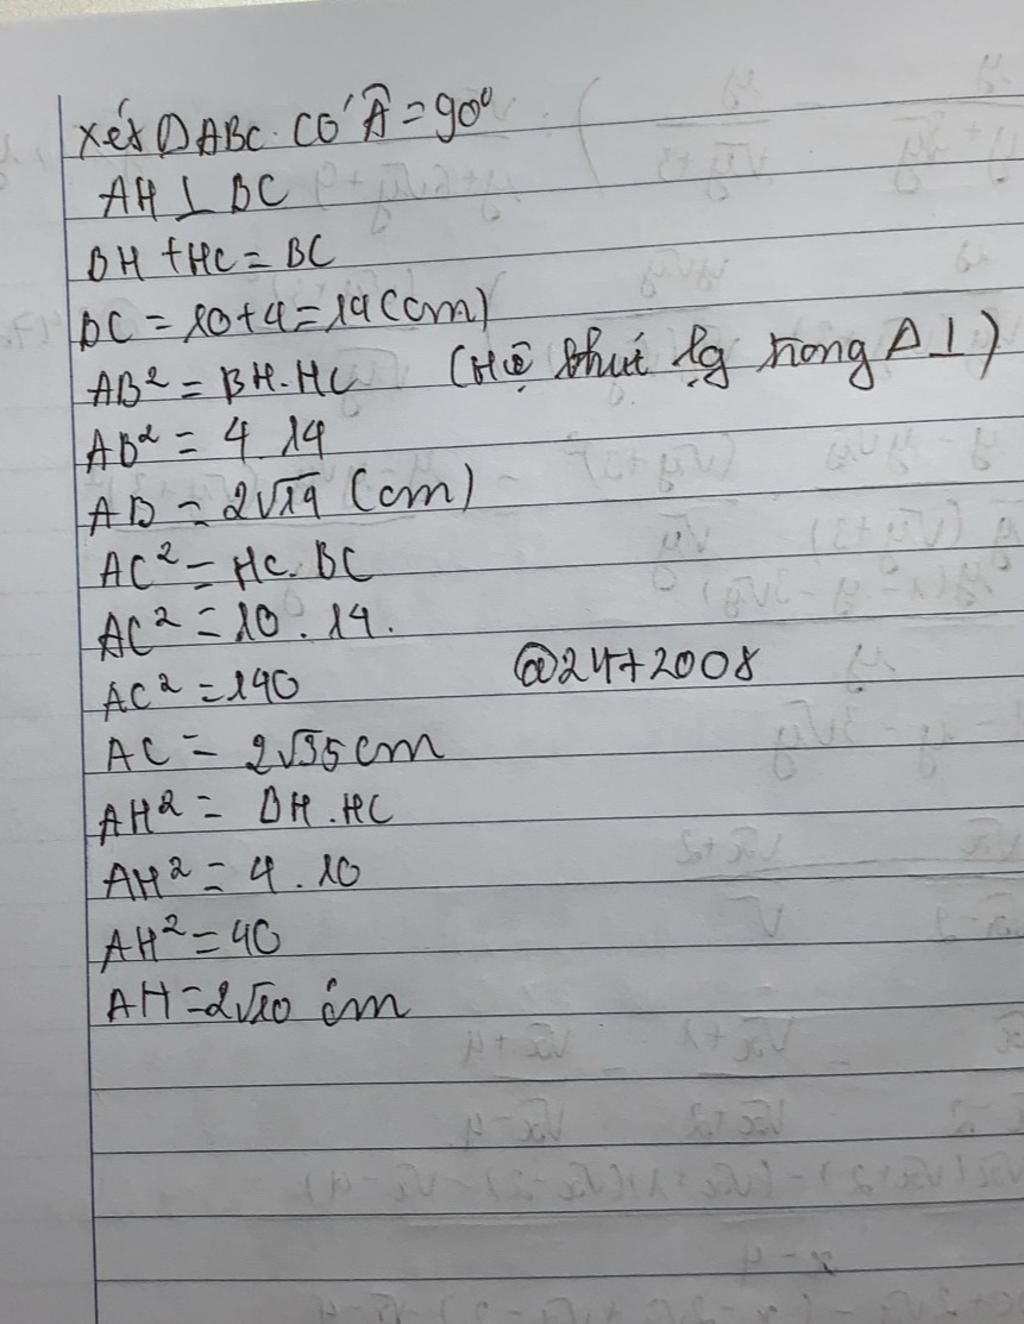 Xét ΔABC có Â = 90⁰
AH ⊥ BC
BH + HC = BC
BC = 10 + 4 = 14 (cm)
AB² = BH. HC (Hệ thức lg trong Δ⊥)
AB² = 4 . 14
AB = 2√14 (cm)
AC² = HC. BC
AC² = 10 . 14.
AC² = 140 @24+2008
AC = 2√35 cm
AH² = BH . HC
AH² = 4 . 10
AH² = 40
AH = 2√10 cm